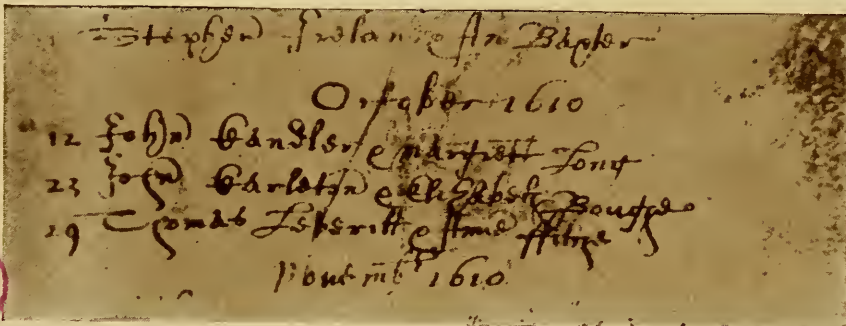 Stephen Ireland & An Baxter
October 1610
12 John Candler & Margrett Long
23 John Carleton & Elizabeth
29 Thomas Leveritt & Anne
Novemb 1610